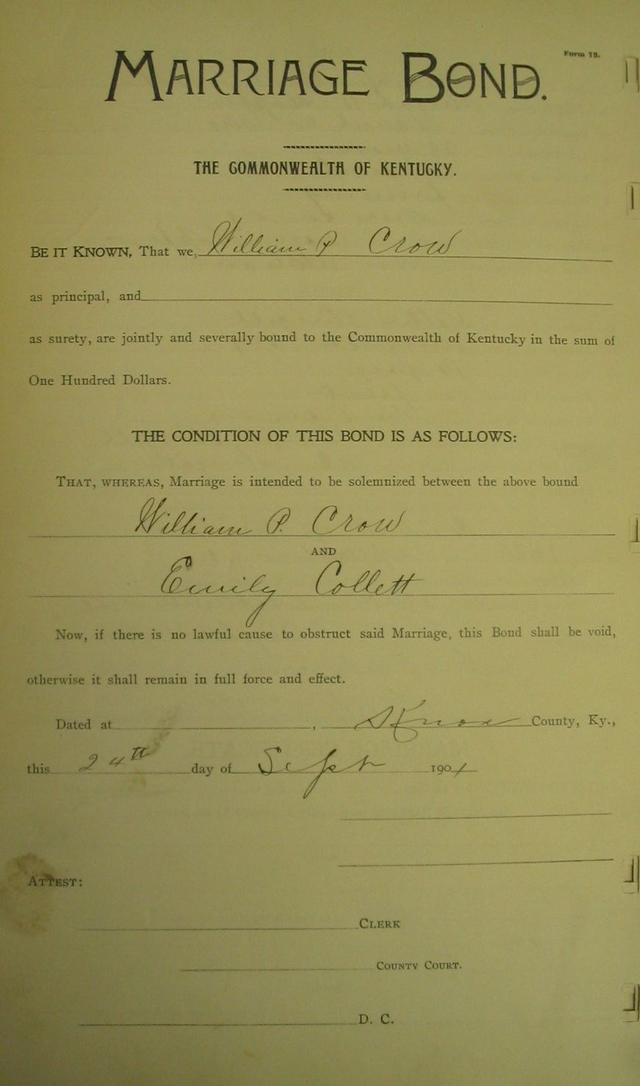 Form 78.
MARRIAGE BOND.
THE COMMONWEALTH OF KENTUCKY.
BE IT KNOWN, That we, William P Crow
as principal, and
as surety, are jointly and severally bound to the Commonwealth of Kentucky in the sum of
One Hundred Dollars.
THE CONDITION OF THIS BOND IS AS FOLLOWS:
THAT, WHEREAS, Marriage is intended to be solemnized between the above bound
William P. Crow
AND
Emily Collett
Now, if there is no lawful cause to obstruct said Marriage, this Bond shall be void,
otherwise it shall remain in full force and effect.
Dated at , Knox County, Ky.,
this 24th day of Sept 1901
ATTEST:
CLERK
COUNTY COURT.
D. C.